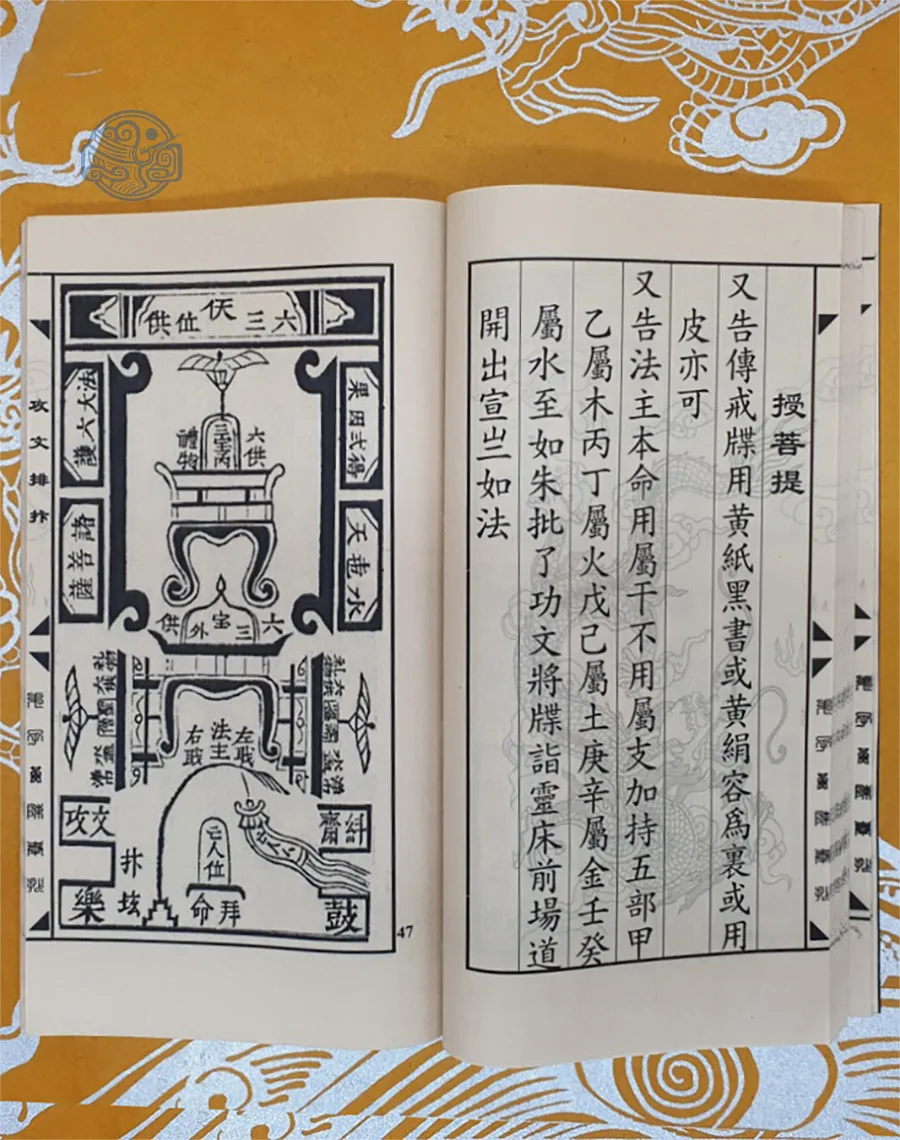 授菩提
又告傳戒牒用黄紙黑書或黄絹容為裏或用
皮亦可
又告法主本命用屬干不用屬支加持五部甲
乙屬木丙丁屬火戊己屬土庚辛屬金壬癸
屬水至如朱批了功文將牒詣靈床前場道
開出宣岦如法
六三位供
果因弍得
法大六護
諸菩薩
六供
禮物
六三宝外供
左戝
法主
右戝
攻文
亡人位
拜命
鼓
樂
47